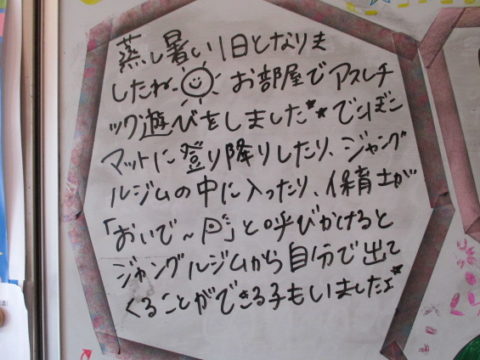 蒸し暑い1日となりま
したね お部屋でアスレチ
ック遊びをしました★★でこぼこ
マットに登り降りしたり、ジャング
ルジムの中に入ったり、保育士が
「おいで〜♪」と呼びかけると
ジャングルジムから自分で出て
くることができる子もいました